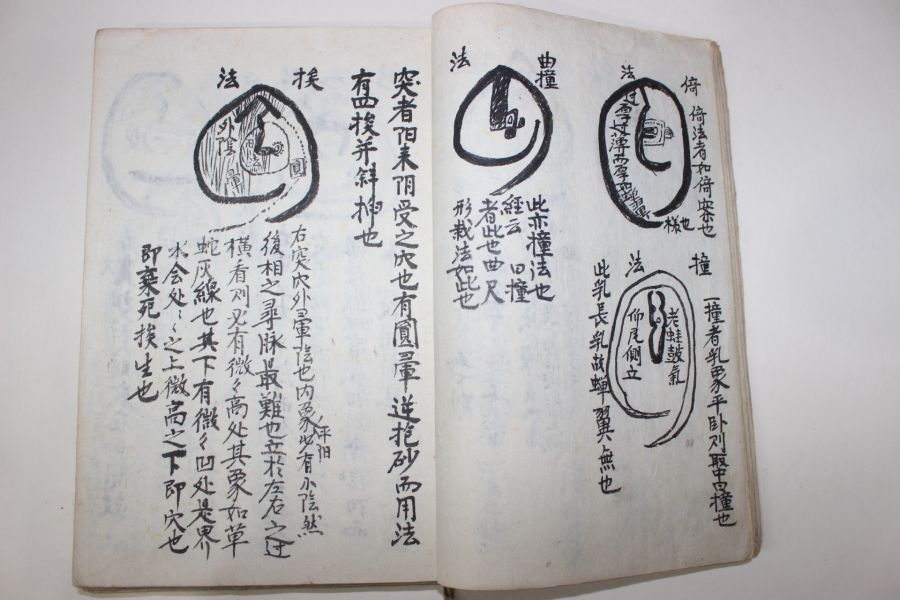 倚
法
倚法者如倚柴也
过厚过薄
様也
撞
法
一撞者乳象平卧则取中曰撞也
老蛙鼓氣
仰尾側立
此乳長乳故蝉翼無也
曲撞
法
此亦撞法也
経云曰撞
者此也曲尺
形裁法如此也
突者阳来阴受之穴也有圓暈逆抱砂而用法
有四挨并斜揷也
挨
法
外陰暈
圓
右突穴外暈陰也内象必有小陰然
平阳
後相之尋脉最難也立於左右之边
横看则必有微々高处其象如草
蛇灰線也其下有微々凹处是界
水会处々之上微高之下即穴也
即棄死挨生也